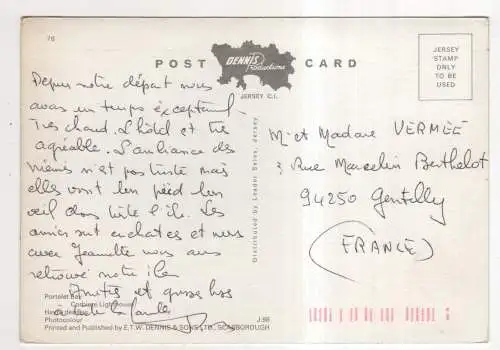 76
POST CARD
DENNIS
Productions
JERSEY C.I.
JERSEY
STAMP
ONLY
TO BE
USED
Depuis notre départ nous
avons un temps exceptionnel
Très chaud. L'hôtel est très
agréable. L'ambiance des
menus n'est pas triste mais
elles vont bon pied bon
oeil dans toute l'île. Les
amies sont enchantées et nous
avec Jeannette nous avons
retrouvé notre île
Amitiés et grosses bises
de toute la bande
Distributed by Leader Sales, Jersey
Mr et Madame VERMÉE
3 Rue Marcelin Berthelot
94250 Gentilly
(FRANCE)
Portelet Bay
Corbière Lighthouse
Photocolour
J.98
Printed and Published by E.T.W. DENNIS & SONS LTD., SCARBOROUGH